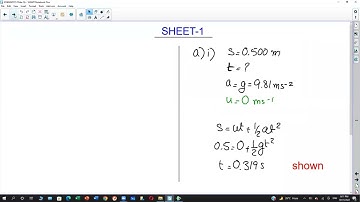 SHEET-1
a) i) S = 0.500 m
t = ?
a = g = 9.81 ms-2
u = 0 ms-1
S = ut + 1/2 at2
0.5 = 0 + 1/2 gt2
t = 0.319 s shown